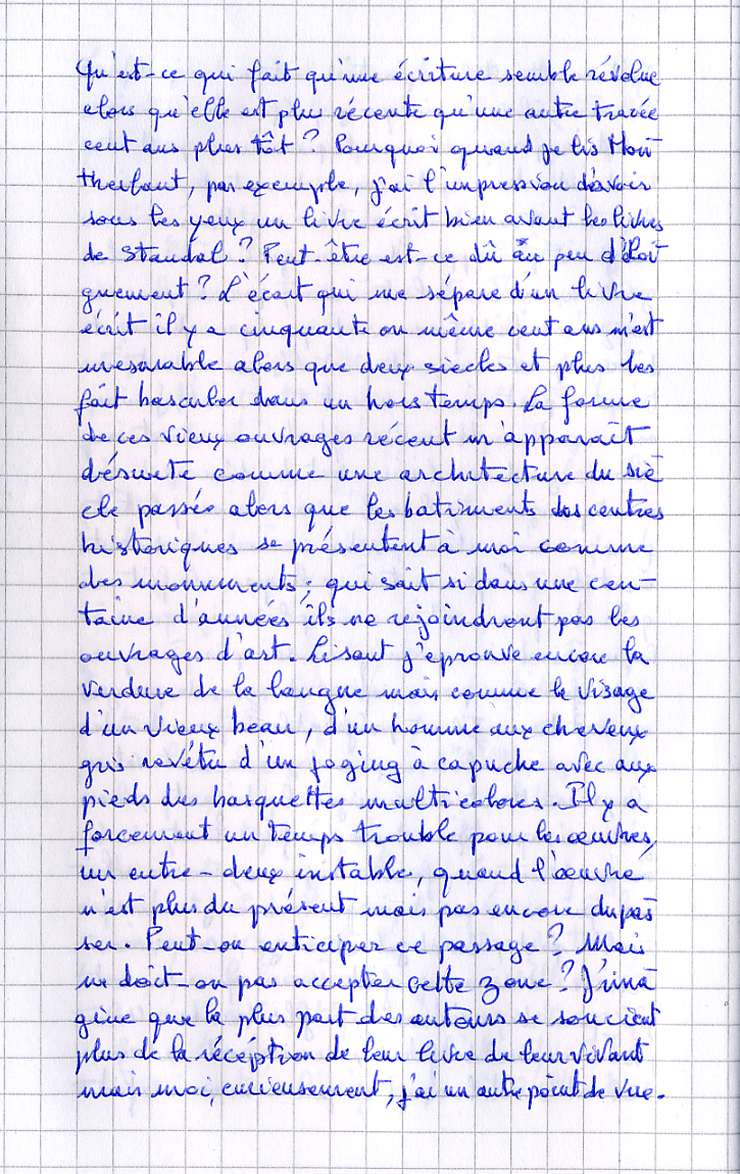 Qu'est-ce qui fait qu'une écriture semble révolue
alors qu'elle est plus récente qu'une autre tracée
cent ans plus tôt ? Pourquoi quand je lis Mon
therlant, par exemple, j'ai l'impression d'avoir
sous les yeux un livre écrit bien avant les livres
de Standal ? Peut-être est-ce dû au peu d'éloi
gnement ? L'écart qui me sépare d'un livre
écrit il y a cinquante ou même cent ans m'est
mesurable alors que deux siècles et plus les
fait basculer dans un hors temps. La forme
de ces vieux ouvrages récent m'apparaît
désuète comme une architecture du siè
cle passée alors que les batiments des centres
historiques se présentent à moi comme
des monuments ; qui sait si dans une cen-
taine d'années ils ne rejoindront pas les
ouvrages d'art. Lisant j'éprouve encore la
verdeur de la langue mais comme le visage
d'un vieux beau, d'un homme aux cheveux
gris revétu d'un joging à capuche avec aux
pieds des basquettes multicolores. Il y a
forcement un temps trouble pour les œuvres,
un entre-deux instable, quand l'œuvre
n'est plus du présent mais pas encore du pas
ser. Peut-on anticiper ce passage ? Mais
ne doit-on pas accepter cette zone ? J'ima
gine que la plus part des auteurs se soucient
plus de la récéption de leur livre de leur vivant
mais moi, curieusement, j'ai un autre point de vue.